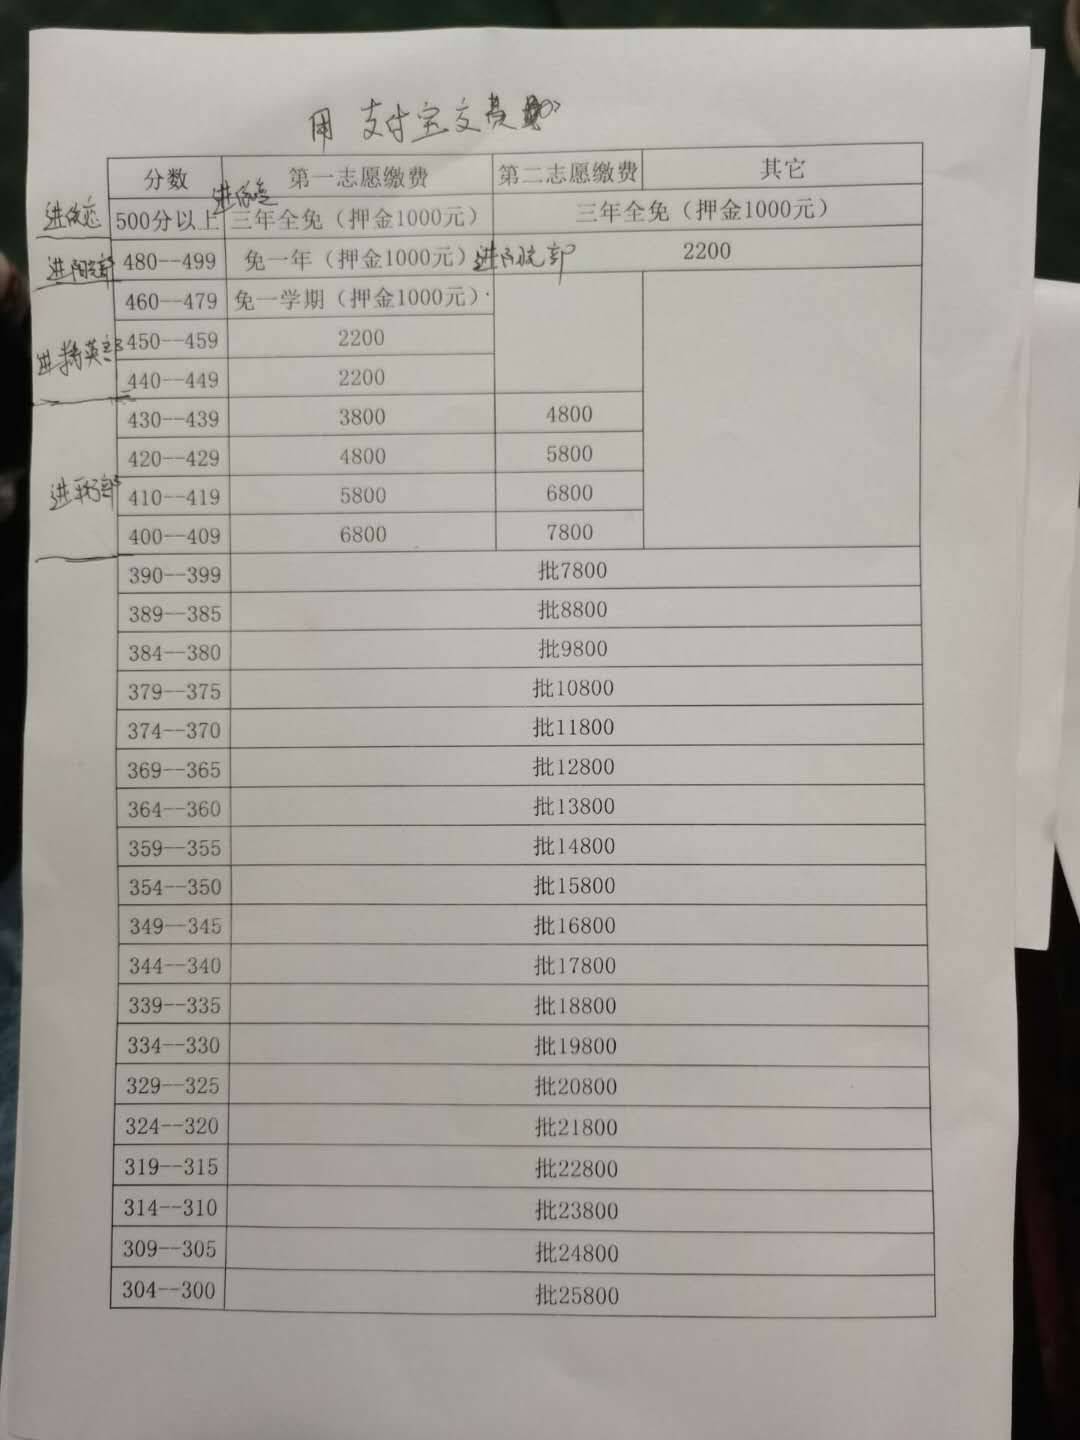 用 支付宝交费
分数 第一志愿缴费 第二志愿缴费 其它
500分以上 三年全免（押金1000元） 三年全免（押金1000元）
480--499 免一年（押金1000元） 2200
460--479 免一学期（押金1000元）
450--459 2200
进精英部
440--449 2200
430--439 3800 4800
420--429 4800 5800
410--419 5800 6800
400--409 6800 7800
390--399 批7800
389--385 批8800
384--380 批9800
379--375 批10800
374--370 批11800
369--365 批12800
364--360 批13800
359--355 批14800
354--350 批15800
349--345 批16800
344--340 批17800
339--335 批18800
334--330 批19800
329--325 批20800
324--320 批21800
319--315 批22800
314--310 批23800
309--305 批24800
304--300 批25800